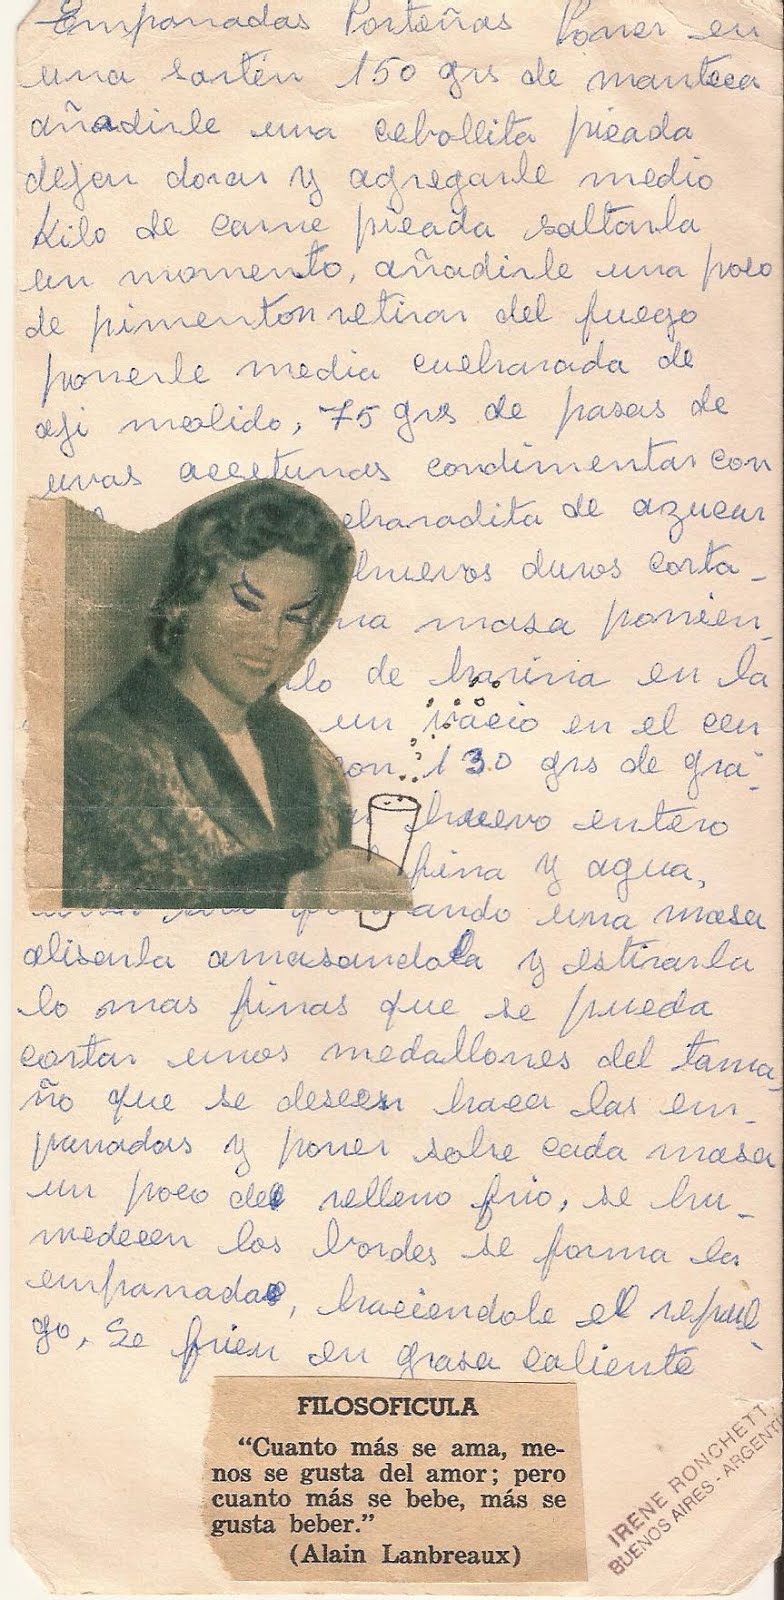 Empanadas Porteñas Poner en
una sartén 150 grs de manteca
añadirle una cebollita picada
dejen dorar y agregarle medio
Kilo de carne picada saltarla
un momento, añadirle una poco
de pimenton retirar del fuego
ponerle media cucharada de
aji molido, 75 grs de pasas de
uvas aceitunas condimentar con
charadita de azucar
huevos duros corta-
na masa ponien-
lo de harina en la
un vacio en el cen
con 130 grs de gra-
huevo entero
fina y agua,
ando una masa
alisarla amasandola y estirarla
lo mas finas que se pueda
cortar unos medallones del tama-
ño que se deseen hacer las em-
panadas y poner sobre cada masa
un poco del relleno frio, se hu-
medecen los bordes se forma la
empanada, haciendole el repul-
go, Se frien en grasa caliente
FILOSOFICULA
"Cuanto más se ama, me-
nos se gusta del amor; pero
cuanto más se bebe, más se
gusta beber."
(Alain Lanbreaux)
IRENE RONCHETT
BUENOS AIRES - ARGENT